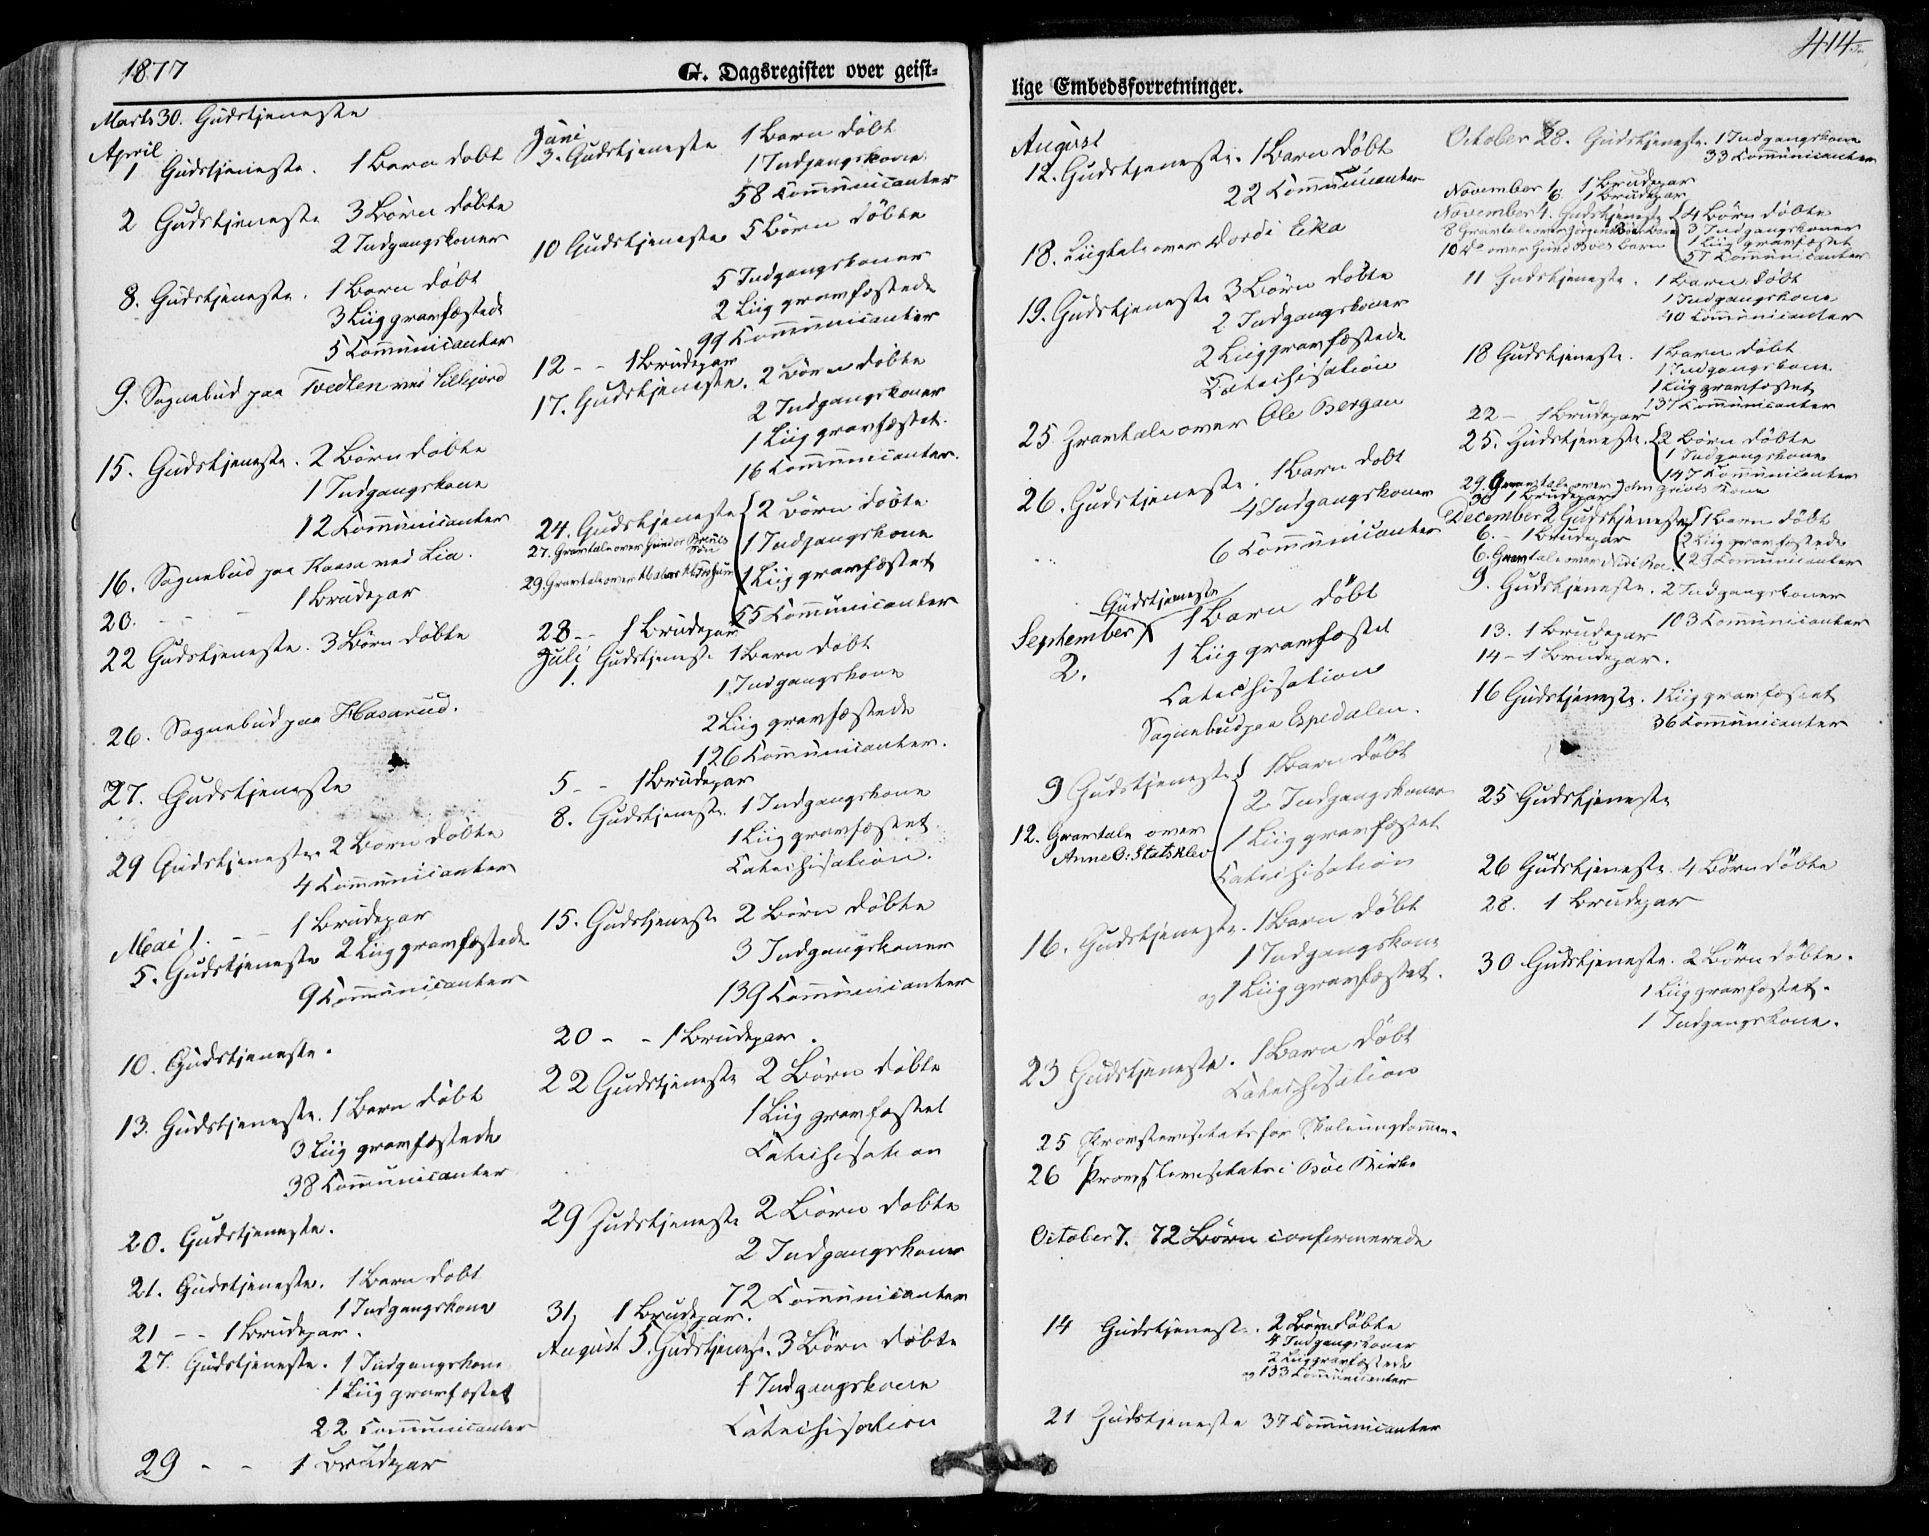 1877
G. Dagsregister over geist-
Marts 30. Gudstjeneste
April
1 Gudstjeneste. 1 Barn døbt
2 Gudstjeneste 3 Børn døbte
2 Indgangskoner
8. Gudstjeneste. 1 Barn døbt
3 Liig gravfæstede
5 Communicanter
9. Sognebud paa Tvedten ved Lillejord
15. Gudstjeneste. 2 Børn døbte
1 Indgangskone
12 Communicanter
16. Sognebud paa Kaasa ved Lia.
20. - - 1 Brudepar
22 Gudstjeneste. 3 Børn døbte
26. Sognebud paa Hasarud.
27. Gudstjeneste
29 Gudstjeneste. 2 Børn døbte
4 Communicanter
Mai 1. - - 1 Brudepar
5. Gudstjeneste 2 Liig gravfæstede
9 Communicanter
10. Gudstjeneste.
13. Gudstjeneste. 1 Barn døbt
3 Liig gravfæstede
38 Communicanter
20. Gudstjeneste.
21. Gudstjeneste. 1 Barn døbt
1 Indgangskone
21 - - 1 Brudepar.
27. Gudstjeneste. 1 Indgangskone
1 Liig gravfæstet
22 Communicanter
29 - - 1 Brudepar
Juni
3. Gudstjeneste 1 Barn døbt
1 Indgangskone
58 Communicanter
10 Gudstjeneste 5 Børn døbte
5 Indgangskoner
2 Liig gravfæstede
99 Communicanter
12 - - 1 Brudepar
17. Gudstjeneste. 2 Børn døbte
2 Indgangskoner
1 Liig gravfæstet.
16 Communicanter.
24. Gudstjeneste 2 Børn døbte
27. Gravtale over Gunder
1 Indgangskone
29. Gravtale over
1 Liig gravfæstet
55 Communicanter
28 - - 1 Brudepar
Juli
1. Gudstjeneste. 1 Barn døbt
1 Indgangskone
2 Liig gravfæstede
126 Communicanter.
5 - - 1 Brudepar
8. Gudstjeneste. 1 Indgangskone
1 Liig gravfæstet.
Catechisation.
15. Gudstjeneste 2 Børn døbte
3 Indgangskoner
139 Communicanter
20 - - 1 Brudepar.
22 Gudstjeneste 2 Børn døbte
1 Liig gravfæstet
Catechisation
29 Gudstjeneste 2 Børn døbte
2 Indgangskoner
72 Communicanter
31, 1 Brudepar.
August 5. Gudstjeneste. 3 Børn døbte
1 Indgangskone
Catechisation
414
lige Embedsforretninger.
August
12. Gudstjeneste. 1 Barn døbt
22 Communicanter
18. Liigtale over Dordi Eika
19. Gudstjeneste 3 Børn døbte
2 Indgangskoner
2 Liig gravfæstede
Catechisation
25 Gravtale over Ole Bergan
26. Gudstjeneste. 1 Barn døbt
4 Indgangskoner
6 Communicanter
Gudstjeneste
September 1 Barn døbt
2. 1 Liig gravfæstet
Catechisation
Sognebud paa Espedalen.
9 Gudstjeneste 1 Barn døbt
2 Indgangskoner
12. Gravtale over 1 Liig gravfæstet
Anne O. Statsklev
Catechisation
16. Gudstjeneste. 1 Barn døbt
1 Indgangskone
og 1 Liig gravfæstet.
23 Gudstjeneste. 1 Barn døbt
Catechisation
25 Provstevisitats for Skoleungdommen.
26 Provstevisitats i Bøe Kirke
October 7. 72 Børn confirmerede
14 Gudstjeneste. 2 Børn døbte
4 Indgangskoner
2 Liig gravfæstede
og 133 Communicanter
21 Gudstjeneste 37 Communicanter
October 28. Gudstjeneste. 1 Indgangskone
33 Communicanter
November 1. 1 Brudepar
6. 1 Brudepar
November 4. Gudstjeneste 4 Børn døbte
8 Gravtale over
3 Indgangskoner
10 Do over Barn
1 Liig gravfæstet
57 Communicanter
11 Gudstjeneste. 1 Barn døbt
1 Indgangskone
40 Communicanter
18 Gudstjeneste. 1 Barn døbt
1 Indgangskone
1 Liig gravfæstet
137 Communicanter
22 - 1 Brudepar
25. Gudstjeneste. 2 Børn døbte
1 Indgangskone
147 Communicanter
29. Gravtale over Kone
30 1 Brudepar
December 2 Gudstjeneste 1 Barn døbt
6. - 1 Brudepar 2 Liig gravfæstede
6. Gravtale over
129 Communicanter
9. Gudstjeneste. 2 Indgangskoner
103 Communicanter
13. 1 Brudepar
14 - 1 Brudepar.
16 Gudstjeneste. 1 Liig gravfæstet
36 Communicanter
25 Gudstjeneste
26 Gudstjeneste. 4 Børn døbte
28. 1 Brudepar
30 Gudstjeneste. 2 Børn døbte.
1 Liig gravfæstet.
1 Indgangskone.